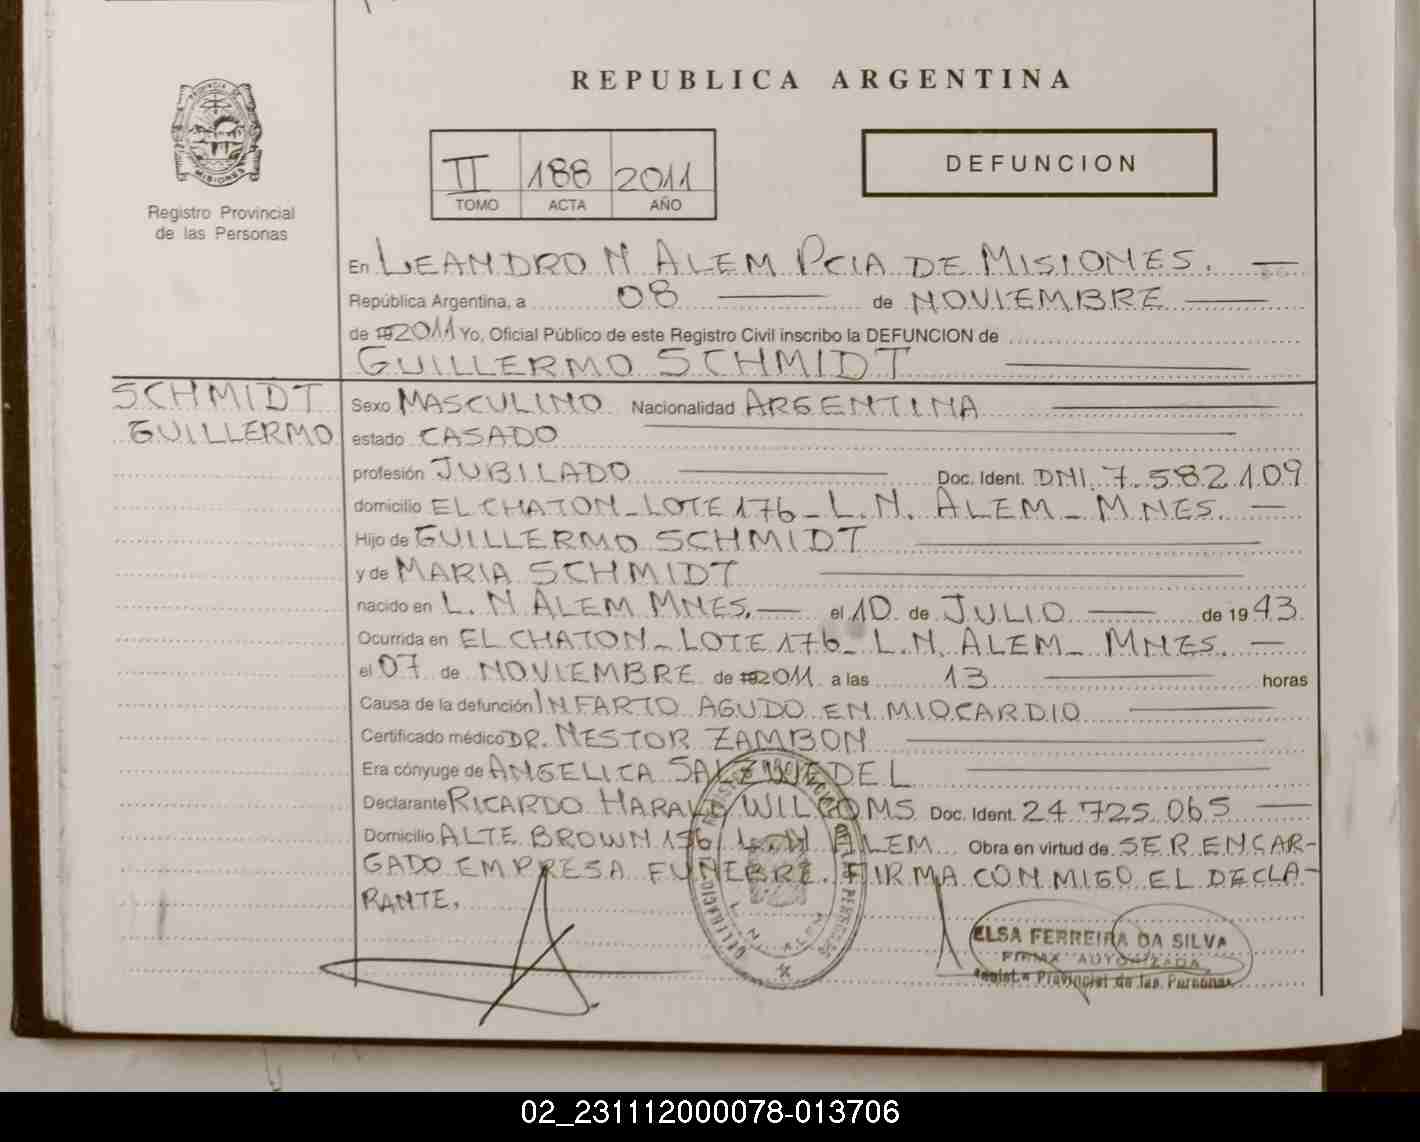 REPUBLICA ARGENTINA
PROVINCIA DE MISIONES
Registro Provincial
de las Personas
II 188 2011
TOMO ACTA AÑO
DEFUNCION
En LEANDRO N ALEM PCIA DE MISIONES.
República Argentina, a 08 de NOVIEMBRE
de 19 2011 Yo, Oficial Público de este Registro Civil inscribo la DEFUNCION de
GUILLERMO SCHMIDT
SCHMIDT
GUILLERMO
Sexo MASCULINO Nacionalidad ARGENTINA
estado CASADO
profesión JUBILADO Doc. Ident. DNI. 7.582.109
domicilio EL CHATON - LOTE 176 - L.N. ALEM - MNES.
Hijo de GUILLERMO SCHMIDT
y de MARIA SCHMIDT
nacido en L.N ALEM MNES. el 10 de JULIO de 19 43.
Ocurrida en EL CHATON - LOTE 176 - L.N. ALEM - MNES.
el 07 de NOVIEMBRE de 19 2011 a las 13 horas
Causa de la defunción INFARTO AGUDO EN MIOCARDIO
Certificado médico DR. NESTOR ZAMBON
Era cónyuge de ANGELICA SALZWEDEL
Declarante RICARDO HARALD WILCOMS Doc. Ident. 24.725.065
Domicilio ALTE BROWN 156 L.N ALEM Obra en virtud de SER ENCAR-
GADO EMPRESA FUNEBRE. FIRMA CONMIGO EL DECLA-
RANTE.
ELSA FERREIRA DA SILVA
FIRMA AUTORIZADA
Regist.º Provincial de las Personas
02_231112000078-013706